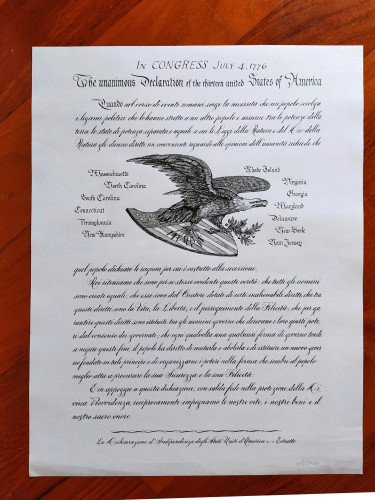 IN CONGRESS JULY 4, 1776
The unanimous Declaration of the thirteen united States of America
Quando nel corso di eventi umani, sorge la necessità che un popolo sciolga
i legami politici che lo hanno stretto a un altro popolo e assuma tra le potenze della
terra lo stato di potenza separata e uguale a cui le Leggi della Natura e del Dio della
Natura gli danno diritto, un conveniente riguardo alle opinioni dell'umanità richiede che
Massachusetts
North Carolina
South Carolina
Connecticut
Pennsylvania
New Hampshire
Rhode Island
Virginia
Georgia
Maryland
Delaware
New York
New Jersey
quel popolo dichiari le ragioni per cui è costretto alla secessione.
Noi riteniamo che sono per se stesse evidenti queste verità: che tutti gli uomini
sono creati eguali; che essi sono dal Creatore dotati di certi inalienabili diritti, che tra
questi diritti sono la Vita, la Libertà, e il perseguimento della Felicità; che per ga
rantire questi diritti sono istituiti tra gli uomini governi che derivano i loro giusti pote
ri dal consenso dei governati; che ogni qualvolta una qualsiasi forma di governo tende
a negare questi fini, il popolo ha diritto di mutarla o abolirla e di istituire un nuovo gover
no fondato su tali principi e di organizzarne i poteri nella forma che sembri al popolo
meglio atta a procurare la sua Sicurezza e la sua Felicità.
E in appoggio a questa dichiarazione, con salda fede nella protezione della Di
vina Provvidenza, reciprocamente impegniamo le nostre vite, i nostri beni e il
nostro sacro onore.
La Dichiarazione d'Indipendenza degli Stati Uniti d'America - Estratto